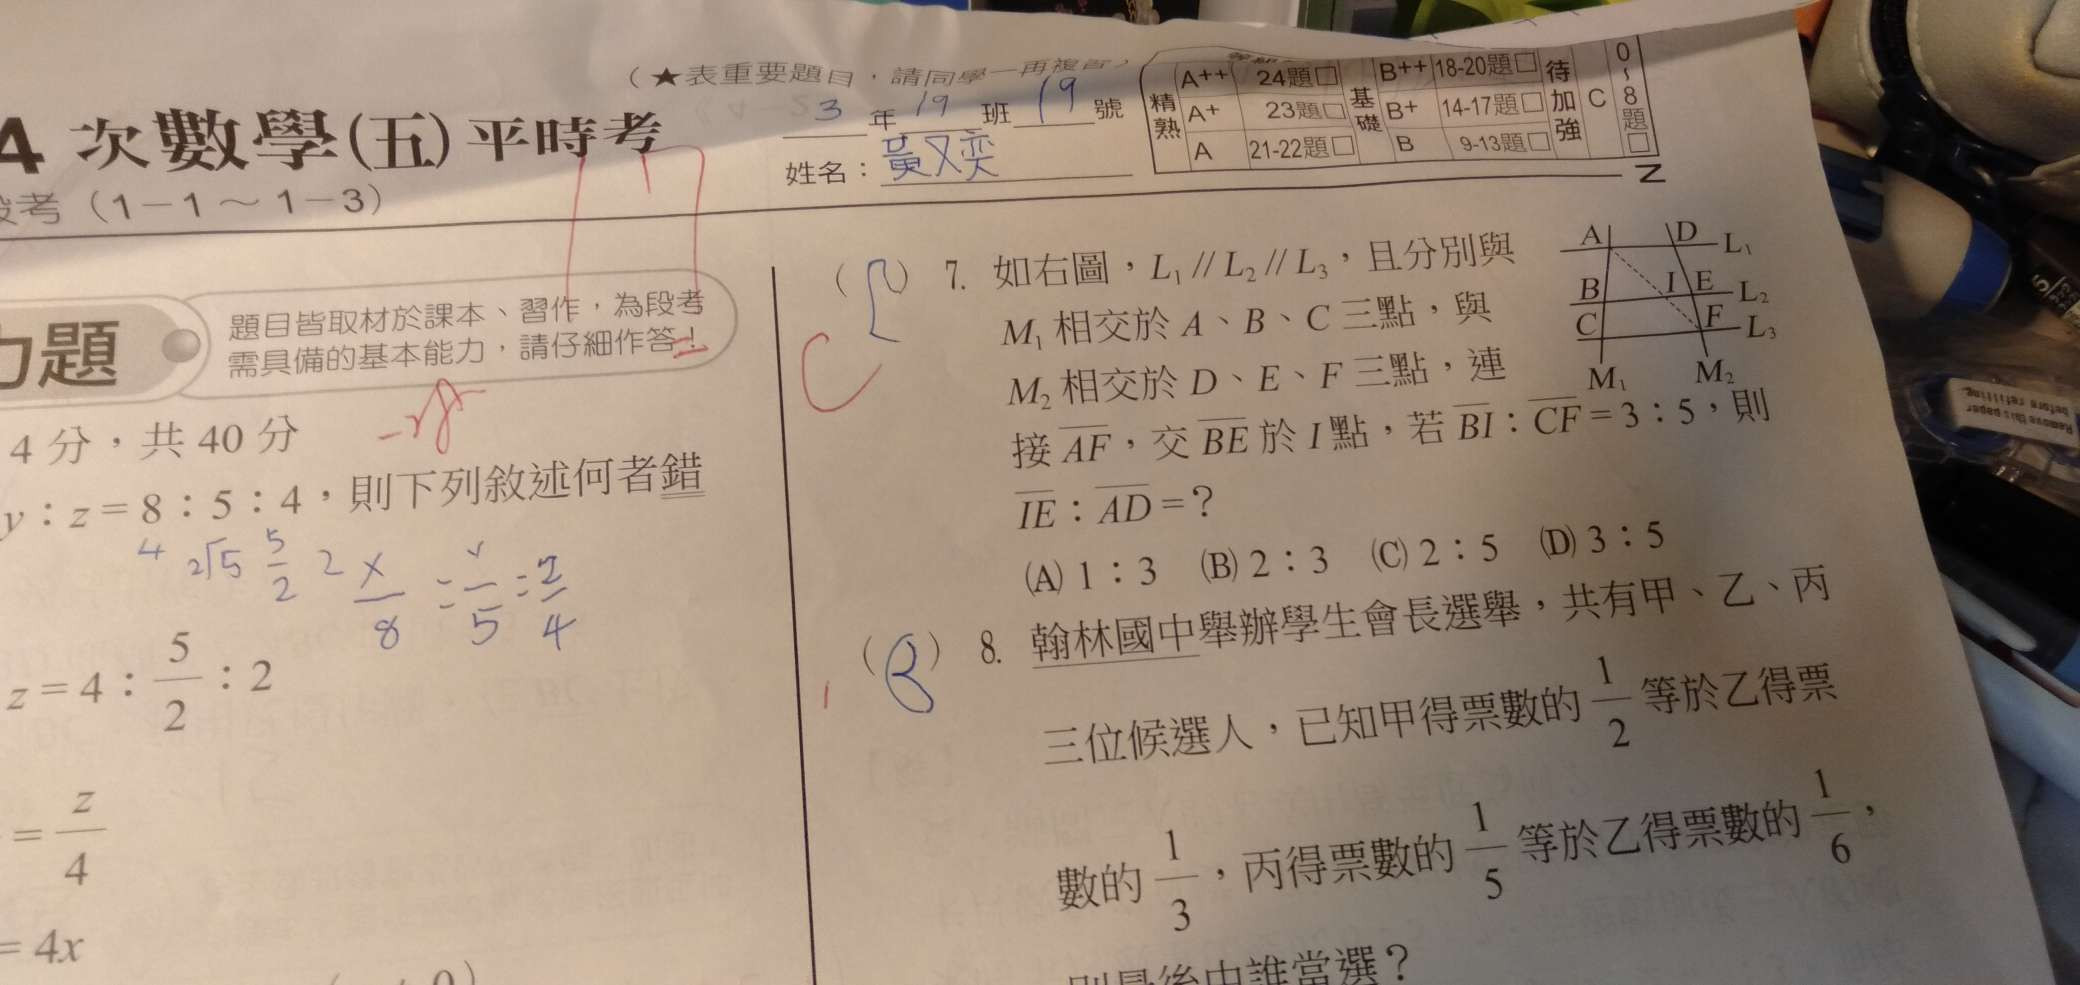 (★表重要題目，請同學一再複習)
4 次數學(五)平時考
3 年 19 班 19 號
姓名：黃又奕
精熟 A++ 24題□ 基礎 B++ 18-20題□ 待加強 C 0~8題□
A+ 23題□ B+ 14-17題□
A 21-22題□ B 9-13題□
段考（1－1～1－3）
N
題目皆取材於課本、習作，為段考
需具備的基本能力，請仔細作答！
力題
4 分，共 40 分
y：z＝8：5：4，則下列敘述何者錯
4 2√5 5/2 2 x/8 = y/5 = z/4
z＝4：5/2：2
＝z/4
＝4x
C
7. 如右圖，L₁∥L₂∥L₃，且分別與
M₁ 相交於 A、B、C 三點，與
M₂ 相交於 D、E、F 三點，連
接 AF，交 BE 於 I 點，若 BI：CF＝3：5，則
IE：AD＝？
(A) 1：3 (B) 2：3 (C) 2：5 (D) 3：5
A D L₁
B I E L₂
C F L₃
M₁ M₂
(B) 8. 翰林國中舉辦學生會長選舉，共有甲、乙、丙
三位候選人，已知甲得票數的 1/2 等於乙得票
數的 1/3，丙得票數的 1/5 等於乙得票數的 1/6，
則最後由誰當選？
Remove this paper
before refilling